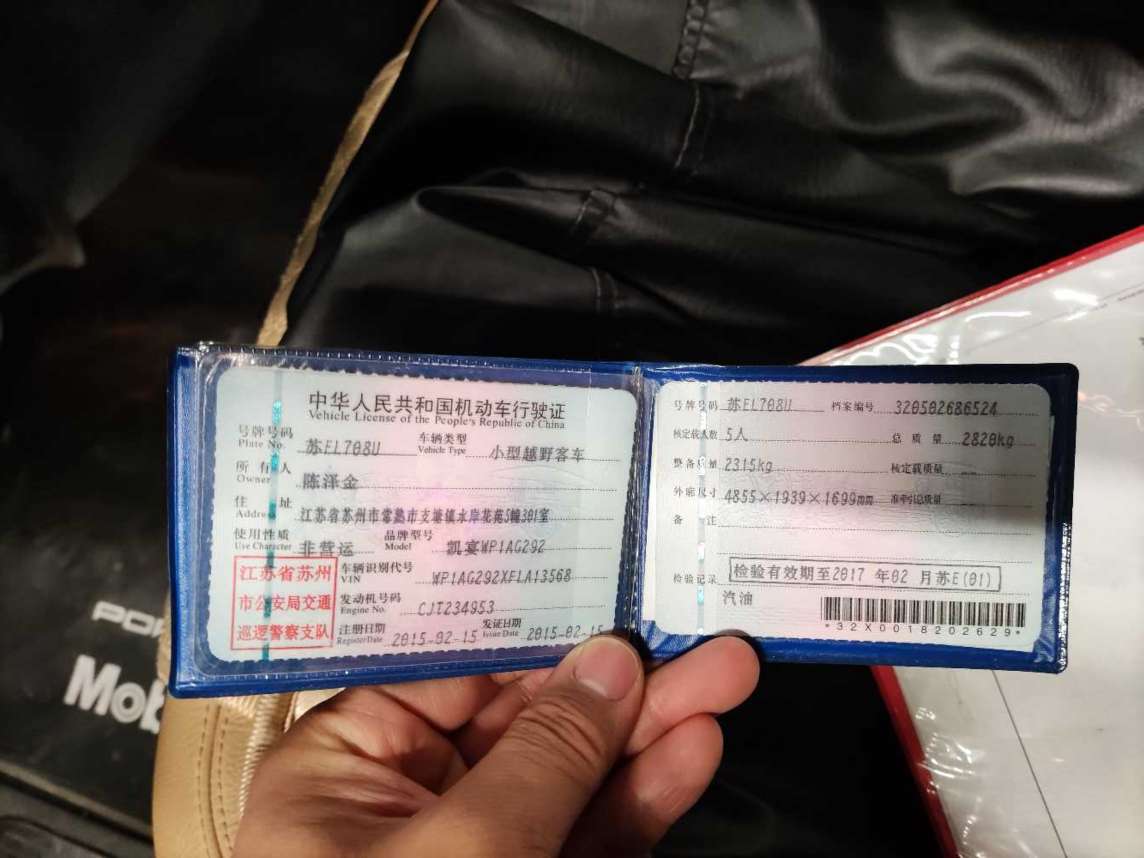 中华人民共和国机动车行驶证
Vehicle License of the People's Republic of China
号牌号码 Plate No. 苏EL708U 车辆类型 Vehicle Type 小型越野客车
所有人 Owner 陈泽金
住址 Address 江苏省苏州市常熟市支塘镇水岸花苑5幢301室
使用性质 Use Character 非营运 品牌型号 Model 凯宴WP1AG292
江苏省苏州
市公安局交通
巡逻警察支队
车辆识别代号 VIN WP1AG292XFLA13568
发动机号码 Engine No. CJT234953
注册日期 Register Date 2015-02-15 发证日期 Issue Date 2015-02-15
号牌号码 苏EL708U 档案编号 320502686524
核定载人数 5人 总质量 2820kg
整备质量 2315kg 核定载质量 --
外廓尺寸 4855×1939×1699mm 准牵引总质量
备注
检验记录 检验有效期至2017年02月苏E(01)
汽油
*32X0018202629*
POR
Mob